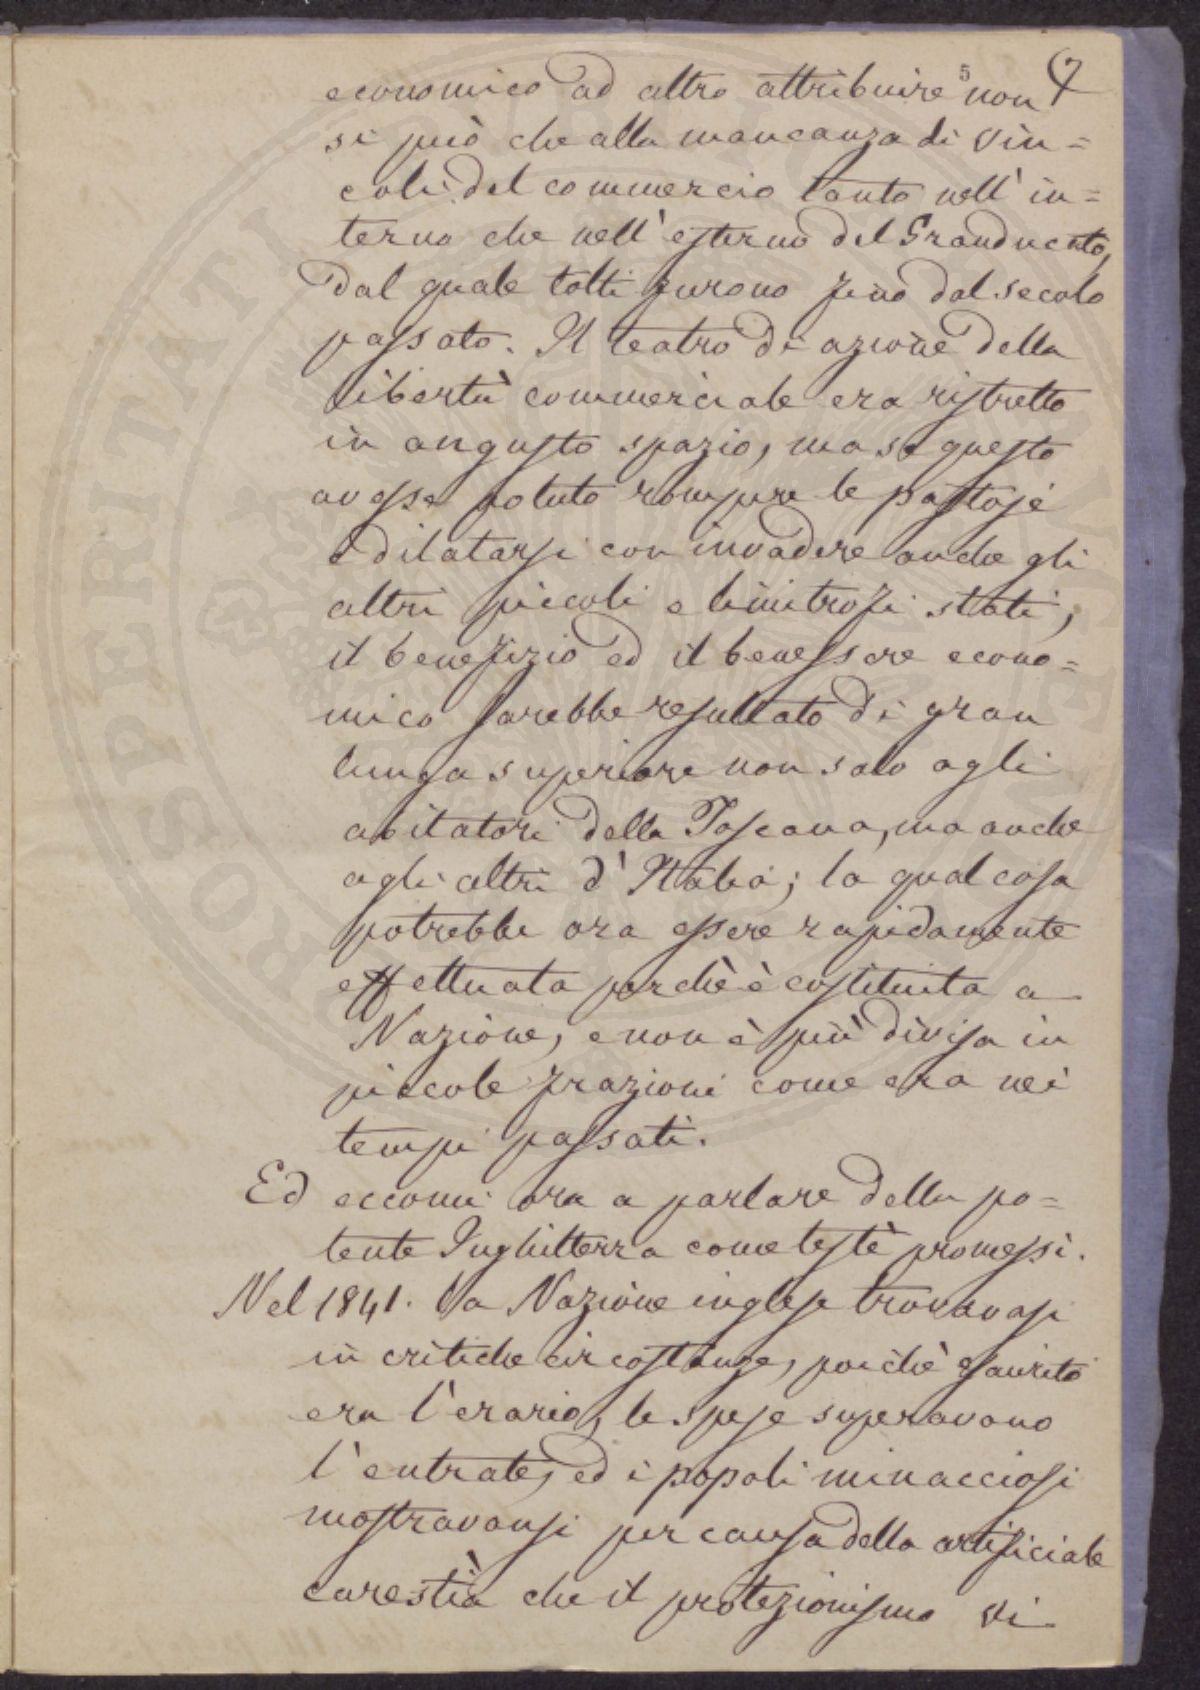 5
7
economico ad altro attribuire non
si può che alla mancanza di vin=
coli del commercio tanto nell' in=
terno che nell' esterno del Granducato,
dal quale tolti furono fino dal secolo
passato. Il teatro di azione della
libertà commerciale era ristretto
in angusto spazio, ma se questo
avesse potuto rompere le pastoje
e dilatarsi con invadere anche gli
altri piccoli e limitrofi stati,
il benefizio ed il benessere econo=
mico sarebbe resultato di gran
lunga superiore non solo agli
abitatori della Toscana, ma anche
agli altri d' Italia; la qual cosa
potrebbe ora essere rapidamente
effettuata perchè è costituita a
Nazione, e non è più divisa in
piccole frazioni come era nei
tempi passati.
Ed eccomi ora a parlare della po=
tente Inghilterra come testè promessi.
Nel 1841. la Nazione inglese trovavasi
in critiche circostanze, poichè esaurito
era l'erario, le spese superavano
l'entrate, ed i popoli minacciosi
mostravansi per causa della artificiale
carestia che il protezionismo vi
PROSPERITATI PUBLICAE AUGENDAE